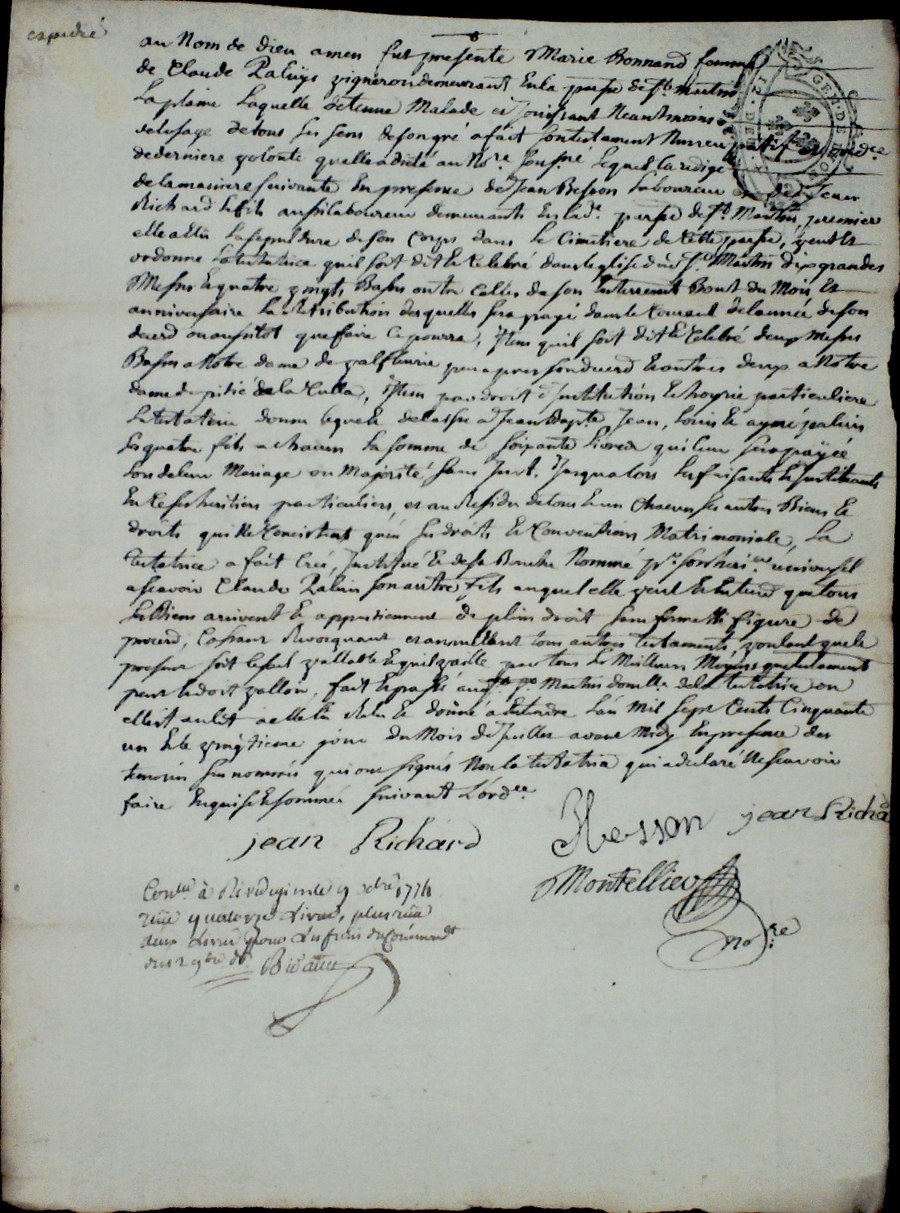 expedié
au Nom de dieu amen fut presente Marie Bonnand femme
de Claude Paluys vigneron demeurant En la parse de st martin
La plaine Laquelle detenue Malade et Jouissant Neantmoins
de lusage de tous ses sens de son gré a fait son testament Nuncupatif et ordce
de derniere volonté quelle a dicté au Nore soussné Lequel la redigé
de la maniere suivante En presence de Jean Besson laboureur et de Jean
Richard Le fils aussi laboureur demeurants En lad. parse de st Martin, premier
elle a Elu La sepulture de son Corps dans le Cimetiere de Cette parse, veut Et
ordonne La testatrice quil soit dit Et Celebré dans leglise dud st Martin dix grandes
Messes Et quatre vingts Basses outre Celles de son Enterrement Bout du Mois Et
anniversaire La retribution desquelles sera payé dans le Courant de lannée de son
deced ou aussitot que faire Ce pourra, Item quil soit dit Et Celebré deux Messes
Basses a Notre dame de valfleurie peu apres son deced Et autres deux a Notre
dame de pitié de la Culla, Item par droit d'Institution Et hoyrie particuliere
La testatrice donne Legue Et delaisse a Jean Bapte Jean, Louis Et aymé paluis
ses quatre fils a chacun La somme de soixante Livres qui leur sera payée
Lors de leur Mariage ou Majorité sans Inst. Jusqualors Les faisants Et Instituants
En Ce ses heritiers particuliers, et au Residu de tous Et un Chacun ses autres Biens Et
droits qui Ne Consistent quen ses droits Et Conventions Matrimoniale, La
testatrice a fait Créé, Institué Et de sa Bouche Nommé pr son heri.er universel
a scavoir Claude Paluis son autre fils auquel elle veut Et Entend que tous
ses Biens arrivent Et appartiennent de plein droit sans forme Ni figure de
proced, Cassant Revocquant et annullant tous autres testaments, voulant que le
present soit Le seul vallable Et quil vaille par tous Les Meilleurs Moyens que testament
peut Et doit valloir, fait Et passé aud st Martin domlle de la testatrice ou
elle est au lit a elle Lu Relu Et donné a Entendre Lan Mil sept Cents Cinquante
un Et le vingtieme jour du Mois de Juillet avant Midy En presence des
temoins sus nommés qui ont signés Non la testatrice qui a declaré Ne scavoir
faire Enquise Et sommée suivant L'ordce
jean Richard
Besson jean Richard
Montellier
nore
Conlle à Rivedegier le 9 xbre
quatorze Livres, plus
deux Livres pour Les frais